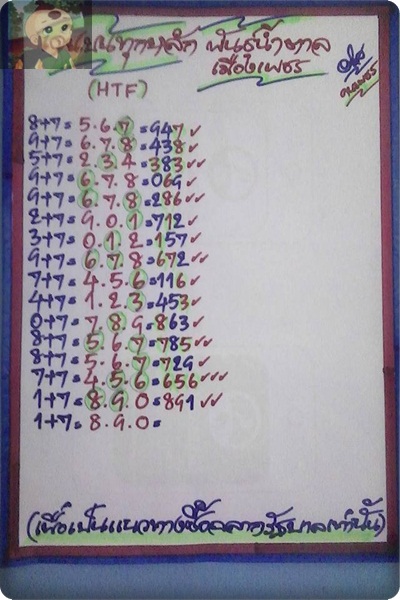 แม่นทุกหลัก พันธุ์น้ำตาล
เมืองเพชร
(HTF)
8+7= 5.6.7=947✓
9+7= 6.7.8=438✓
5+7= 2.3.4=383✓✓
9+7= 6.7.8=069✓
9+7= 6.7.8=286✓✓
2+7= 9.0.1=712✓
3+7= 0.1.2=157✓
9+7= 6.7.8=672✓✓
7+7= 4.5.6=116✓
4+7= 1.2.3=453✓
0+7= 7.8.9=863✓
8+7= 5.6.7=785✓✓
8+7= 5.6.7=729✓
7+7= 4.5.6=656✓✓✓
1+7= 8.9.0=891✓✓
1+7= 8.9.0=
(เพื่อเป็นแนวทางซื้อสลากรัฐบาลเท่านั้น)